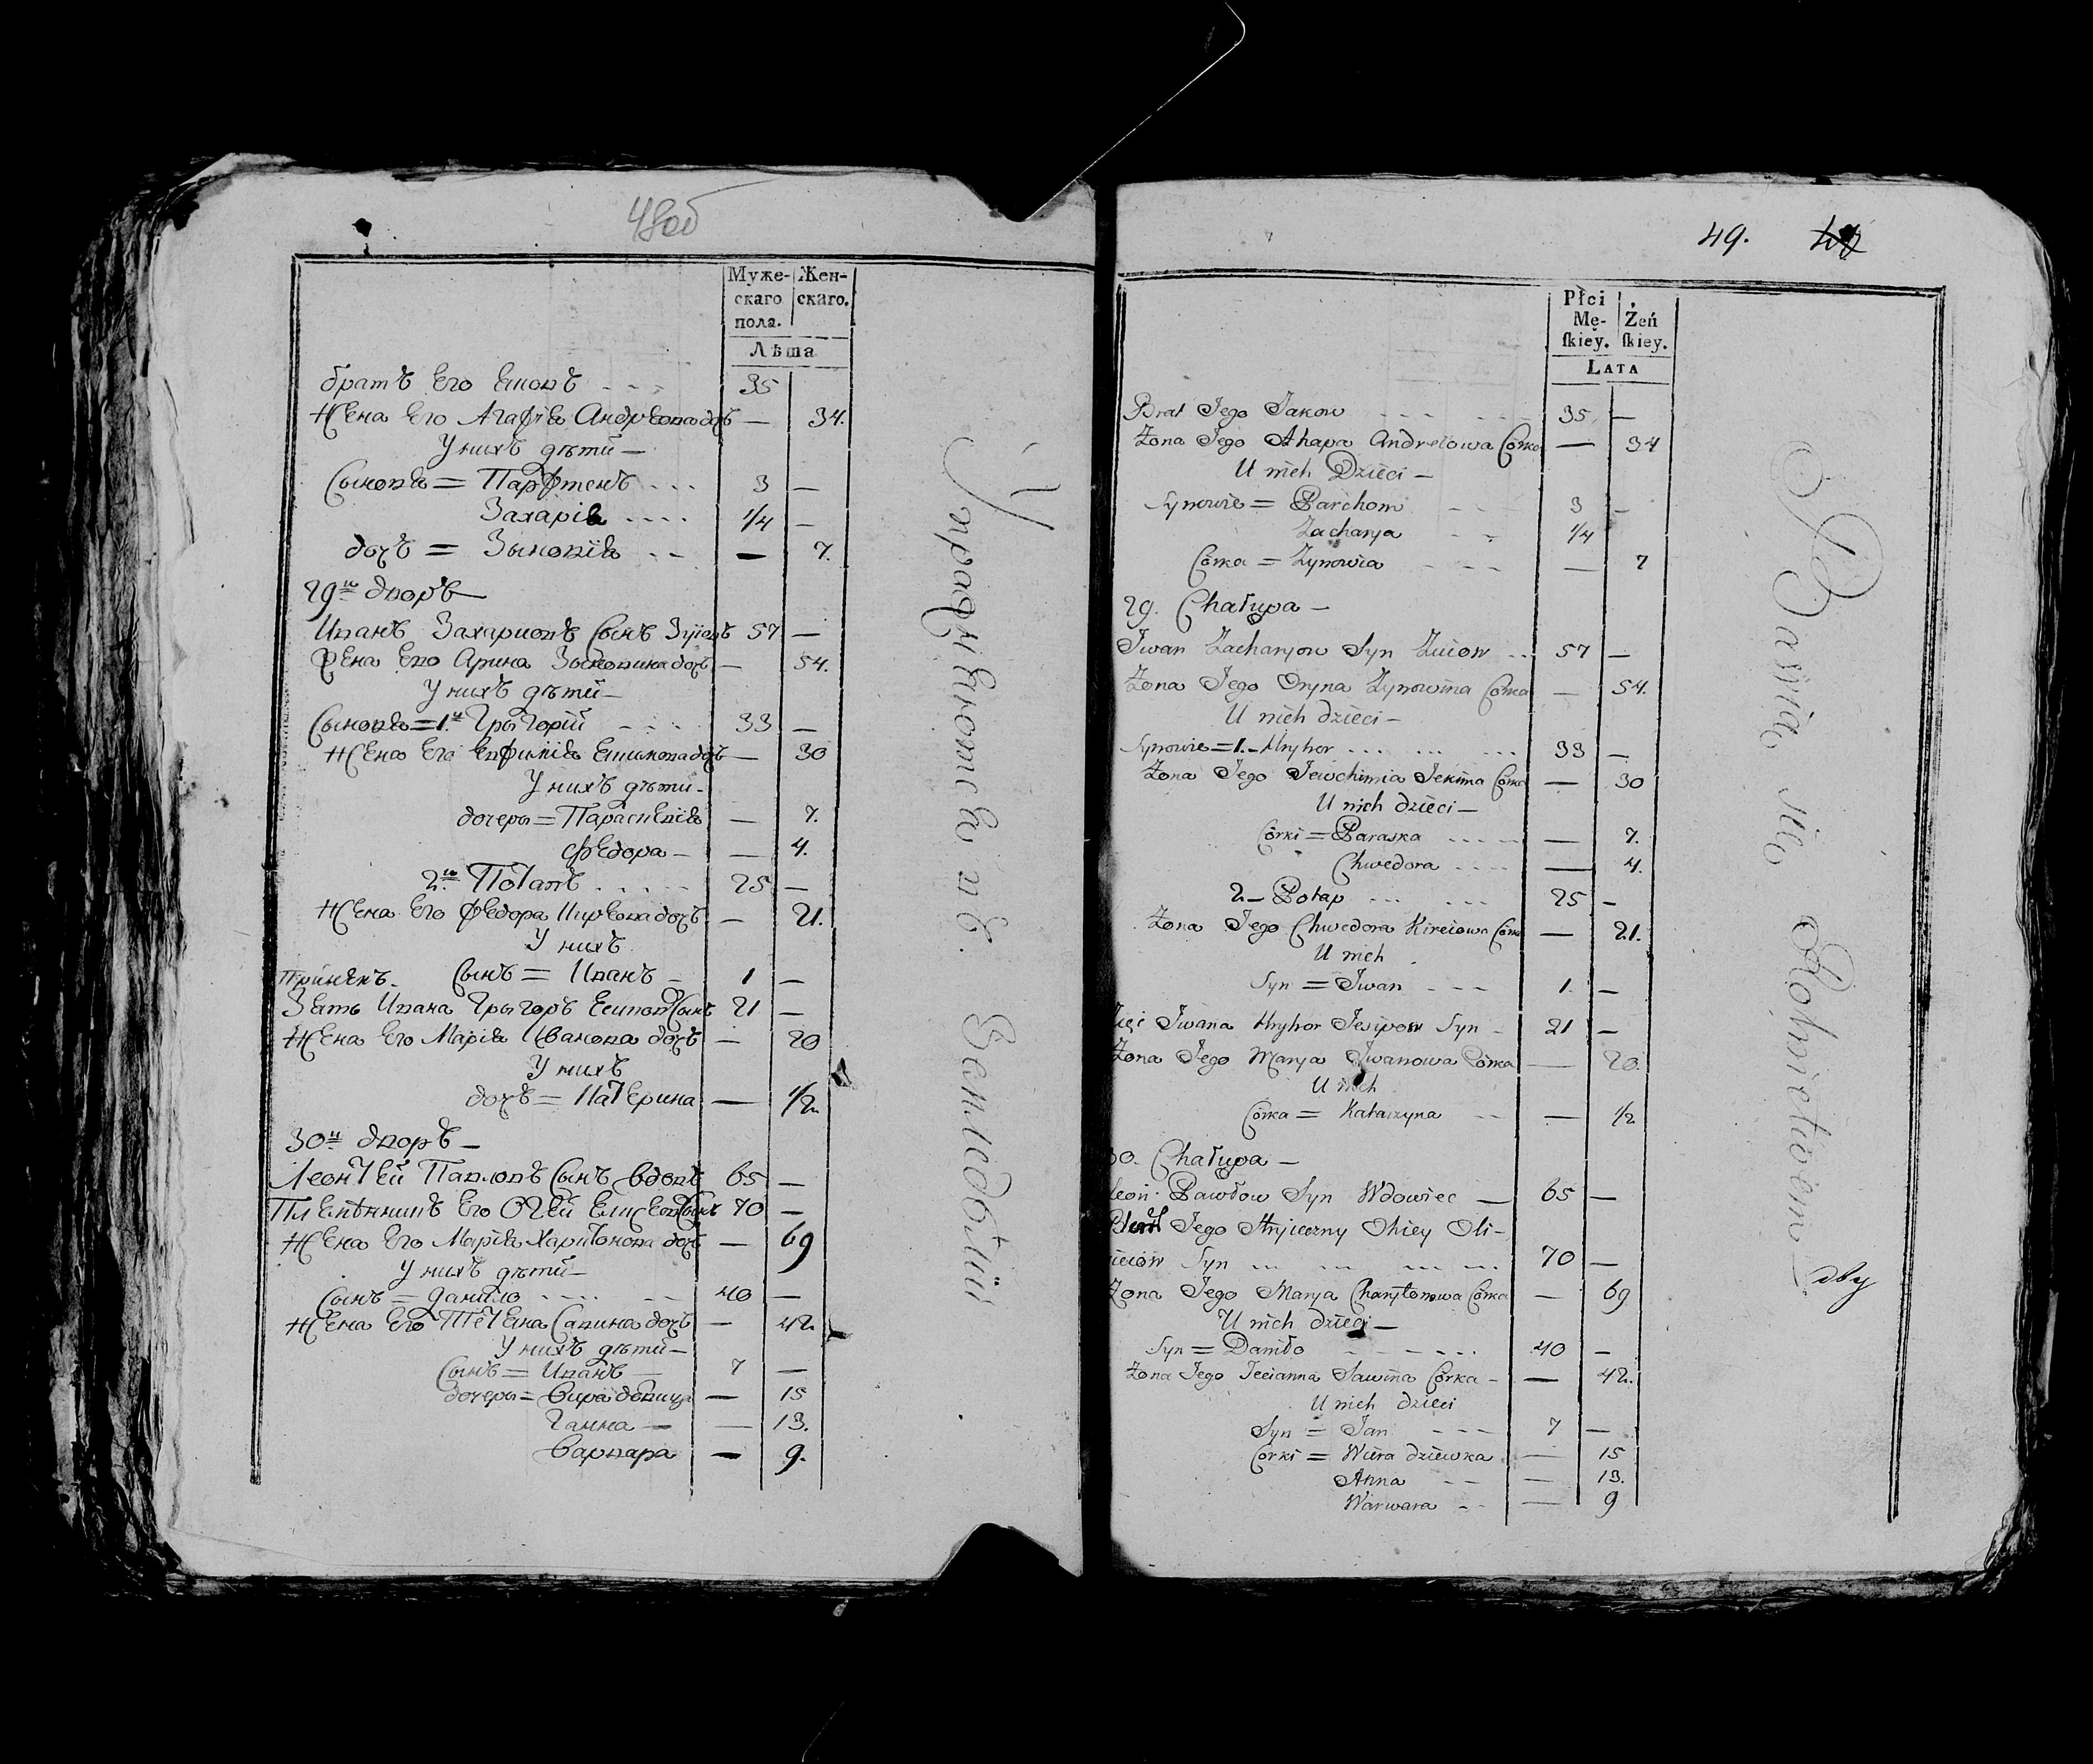 48об
Муже- Жен-
скаго скаго.
пола.
Лѣта
братъ Его Ековъ - - - 35
Жена Его Агафія Андрѣева дочъ — 34.
У нихъ дѣти —
Сыновя = Парфменъ - - - 3 —
Захарія - - - - 1/4 —
дочъ = Зыновія - - — 7.
29й дворъ —
Иванъ Захариовъ Сынъ Зуіовъ 57 —
Жена Его Арина Зыновина дочъ — 54.
У нихъ дѣти —
Сыновя = 1й Грыгорій - - - 33 —
Жена Его Евфимія Екимова дочъ — 30
У нихъ дѣти -
дочеры = Параскевія — 7.
Федора — — 4.
2й Потапъ . . . . 25 —
Жена Его Федора Кирѣева дочъ — 21.
У нихъ
Сынъ = Иванъ - 1 —
Зять Ивана Грыгоръ Есиповъ Сынъ 21 —
Жена Его Марія Иванова дочъ — 20
У нихъ
дочъ = Катерина — 1/2.
30й дворъ —
Леонтей Павловъ Сынъ вдовъ 65 —
Племѣнникъ Его Охей Елисеовъ Сынъ 70 —
Жена Его Марія Харитонова дочъ — 69
У нихъ дѣти —
Сынъ = Данило - - - - 40 —
Жена Его Тетяна Савина дочъ — 42.
У нихъ дѣти —
Сынъ = Иванъ — 7 —
дочеры = Вира дѣвица — 15
Ганна — — 13.
Варвара — 9.
49.
Płci
Mę- Żeń
skiey. skiey.
LATA
Brat Jego Jakow - - - 35. —
Zona Jego Ahapa Andreiowa Córka — 34
U nich Dzieci —
Synowie = Parchom - - 3 —
Zacharya - - 1/4
Córka = Zynowia - - - — 7
29. Chałupa —
Iwan Zacharyow Syn Zuiow .. 57 —
Zona Jego Oryna Zynowina Córka — 54.
U nich dzieci —
Synowie = 1. - Hryhor ... ... ... 33 —
Zona Jego Jewchimia Jekima Córka — 30
U nich dzieci —
Córki = Paraska - - - - — 7.
Chwedora - - - - — 4.
2 — Potap ... ... 25 —
Zona Jego Chwedora Kireiowa Córka — 21.
U nich
Syn = Iwan - - - 1. —
Zięć Iwana Hryhor Jesipow Syn - 21 —
Zona Jego Marya Iwanowa Córka — 20.
U nich
Córka = Katarzyna - - — 1/2
30. Chałupa —
Leon Pawłow Syn Wdowiec — 65 —
Jego Stryieczny Ohiey Oli-
Syn ... ... ... ... 70 —
Zona Jego Marya Charytonowa Córka — 69
U nich dzieci —
Syn = Daniło - - - - 40 —
Zona Jego Tecianna Sawina Córka - — 42.
U nich dzieci
Syn = Jan - - - 7 —
Córki = Wiera dziewka — 15
Anna - - — 13.
Warwara - - — 9